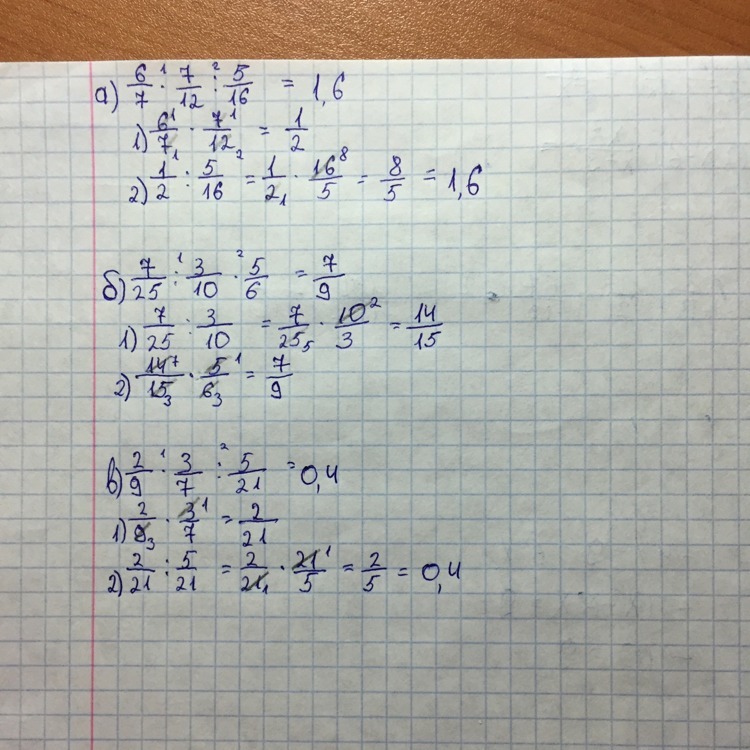 а) 6/7 ·¹ 7/12 :² 5/16 = 1,6
1) 6¹/7₁ · 7¹/12₂ = 1/2
2) 1/2 : 5/16 = 1/2₁ · 16⁸/5 = 8/5 = 1,6
б) 7/25 :¹ 3/10 ·² 5/6 = 7/9
1) 7/25 : 3/10 = 7/25₅ · 10²/3 = 14/15
2) 14⁷/15₃ · 5¹/6₃ = 7/9
в) 2/9 ·¹ 3/7 :² 5/21 = 0,4
1) 2/9₃ · 3¹/7 = 2/21
2) 2/21 : 5/21 = 2/21₁ · 21¹/5 = 2/5 = 0,4